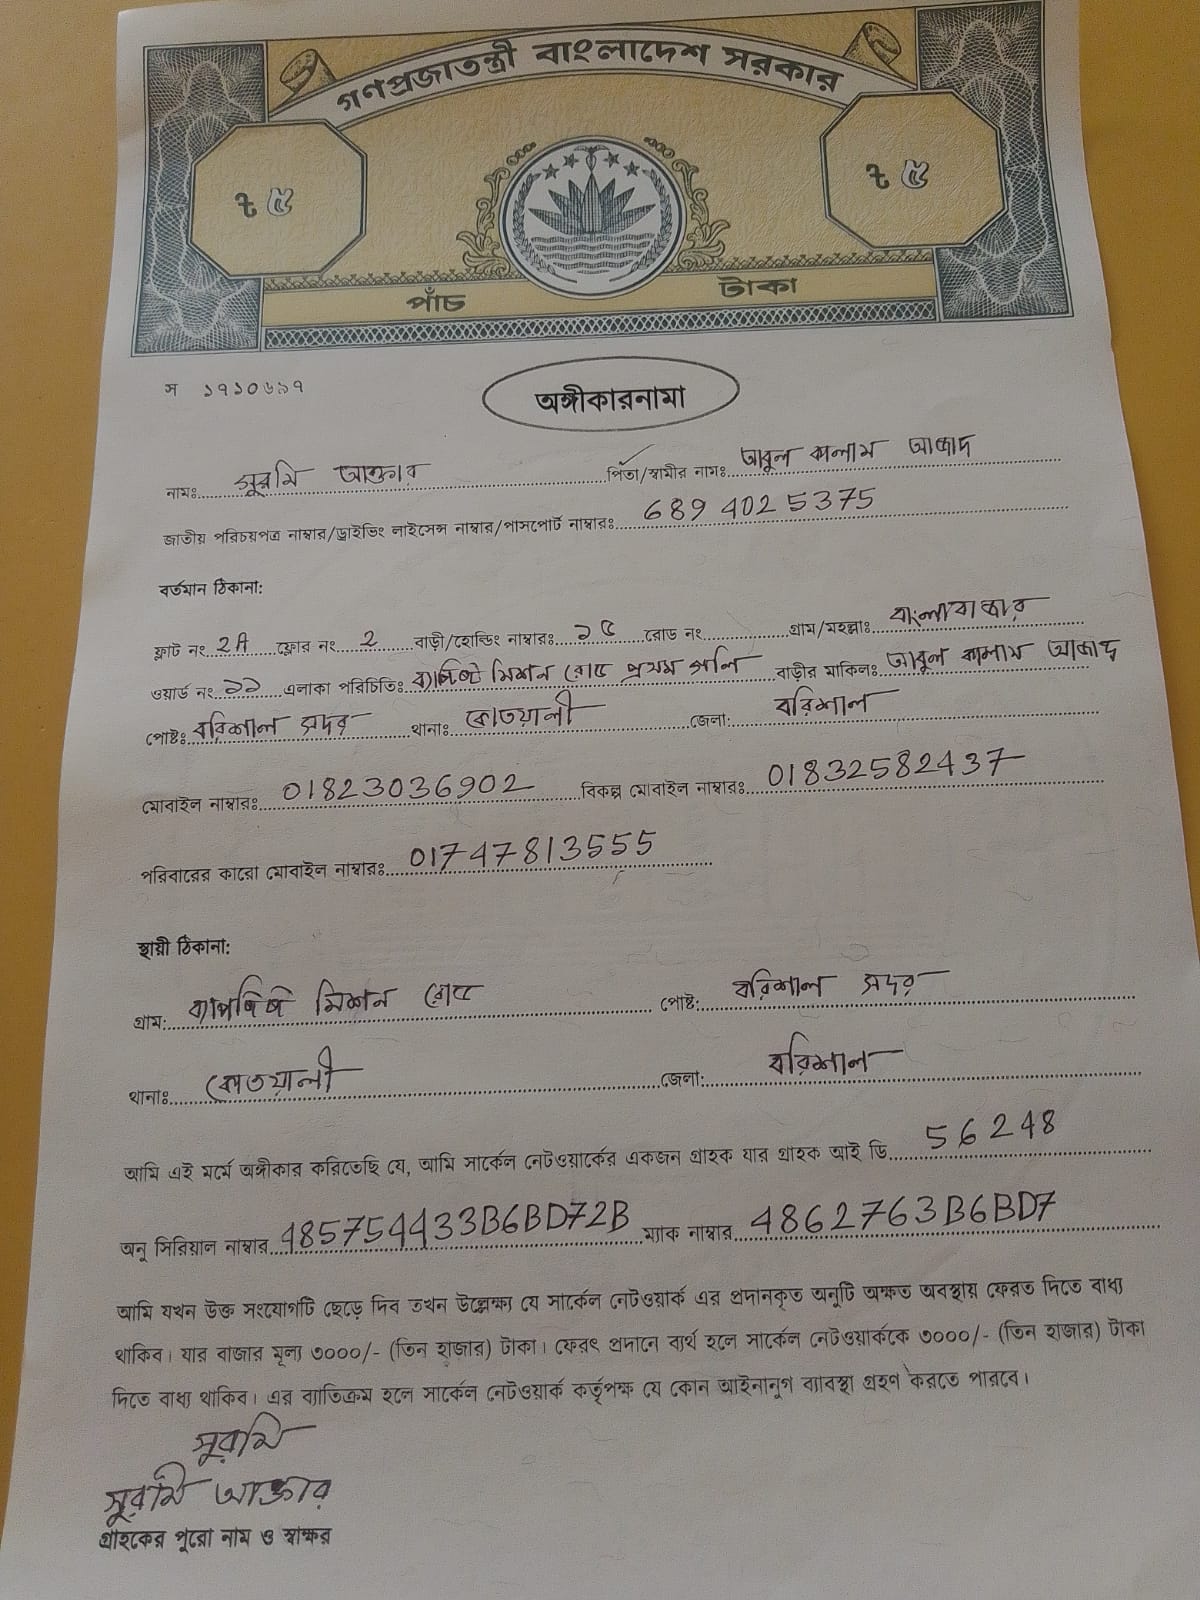 গণপ্রজাতন্ত্রী বাংলাদেশ সরকার
৳ ৫ ৳ ৫
পাঁচ টাকা
স ১৭১০৬৯৭
অঙ্গীকারনামা
নামঃ সুরমি আক্তার পিতা/স্বামীর নামঃ আবুল কালাম আজাদ
জাতীয় পরিচয়পত্র নাম্বার/ড্রাইভিং লাইসেন্স নাম্বার/পাসপোর্ট নাম্বারঃ 689 402 5375
বর্তমান ঠিকানা:
ফ্লাট নং 2A ফ্লোর নং 2 বাড়ী/হোল্ডিং নাম্বারঃ ১৫ রোড নং গ্রাম/মহল্লাঃ বাংলাবাজার
ওয়ার্ড নং ১১ এলাকা পরিচিতিঃ ব্যাপ্টিষ্ট মিশন রোড প্রথম গলি বাড়ীর মালিকঃ আবুল কালাম আজাদ
পোষ্টঃ বরিশাল সদর থানাঃ কোতয়ালী জেলা: বরিশাল
মোবাইল নাম্বারঃ 01823036902 বিকল্প মোবাইল নাম্বারঃ 01832582437
পরিবারের কারো মোবাইল নাম্বারঃ 01747813555
স্থায়ী ঠিকানা:
গ্রাম: মিশন রোড পোষ্ট: বরিশাল সদর
থানাঃ কোতয়ালী জেলা: বরিশাল
আমি এই মর্মে অঙ্গীকার করিতেছি যে, আমি সার্কেল নেটওয়ার্কের একজন গ্রাহক যার গ্রাহক আই ডি 56248
অনু সিরিয়াল নাম্বার 485754433B6BD72B ম্যাক নাম্বার 4862763B6BD7
আমি যখন উক্ত সংযোগটি ছেড়ে দিব তখন উল্লেক্ষ্য যে সার্কেল নেটওয়ার্ক এর প্রদানকৃত অনুটি অক্ষত অবস্থায় ফেরত দিতে বাধ্য
থাকিব। যার বাজার মূল্য ৩০০০/- (তিন হাজার) টাকা। ফেরৎ প্রদানে ব্যর্থ হলে সার্কেল নেটওয়ার্ককে ৩০০০/- (তিন হাজার) টাকা
দিতে বাধ্য থাকিব। এর ব্যাতিক্রম হলে সার্কেল নেটওয়ার্ক কর্তৃপক্ষ যে কোন আইনানুগ ব্যাবস্থা গ্রহণ করতে পারবে।
সুরমি
সুরমি আক্তার
গ্রাহকের পুরো নাম ও স্বাক্ষর